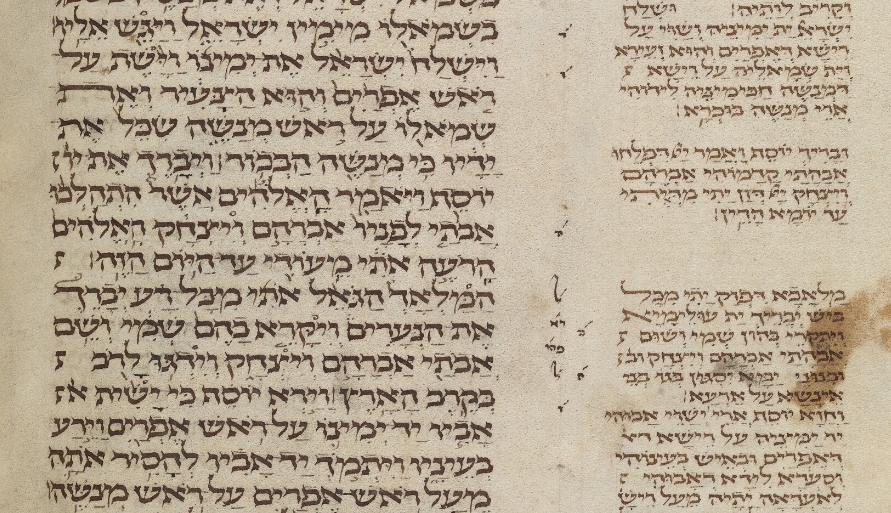 בשמאלו מימין ישראל ויגש אליו
וישלח ישראל את ימינו וישת על
ראש אפרים והוא הצעיר ואת
שמאלו על ראש מנשה שכל את
ידיו כי מנשה הבכור ויברך את
יוסף ויאמר האלהים אשר התהלכו
אבתי לפניו אברהם ויצחק האלהים
הרעה אתי מעודי עד היום הזה
המלאך הגאל אתי מכל רע יברך
את הנערים ויקרא בהם שמי ושם
אבתי אברהם ויצחק וידגו לרב
בקרב הארץ וירא יוסף כי ישית
אביו יד ימינו על ראש אפרים וירע
בעיניו ויתמך יד אביו להסיר אתה
מעל ראש אפרים על ראש מנשה
וקריב לותיה ושלח
ישראל ית ימיניה ושוי על
רישא דאפרים והוא זעירא
וית שמאליה על רישא
דמנשה חכימינון לידוהי
ארי מנשה בוכרא
ובריך יוסף ואמר יי דפלחו
אבהתי קדמוהי אברהם
ויצחק יי דזן יתי
עד יומא הדין
מלאכא דפרק יתי מכל
ביש יבריך ית עולימיא
ויתקרי בהון שמי ושום
אבהתי אברהם ויצחק
וכנוני ימא יסגון בגו בני
אינשא על ארעא
וחזא יוסף ארי ישוי אבוהי
יד ימיניה על רישא
דאפרים ובאיש בעינוהי
וסעדא לידא דאבוהי
לאעדאה יתה מעל